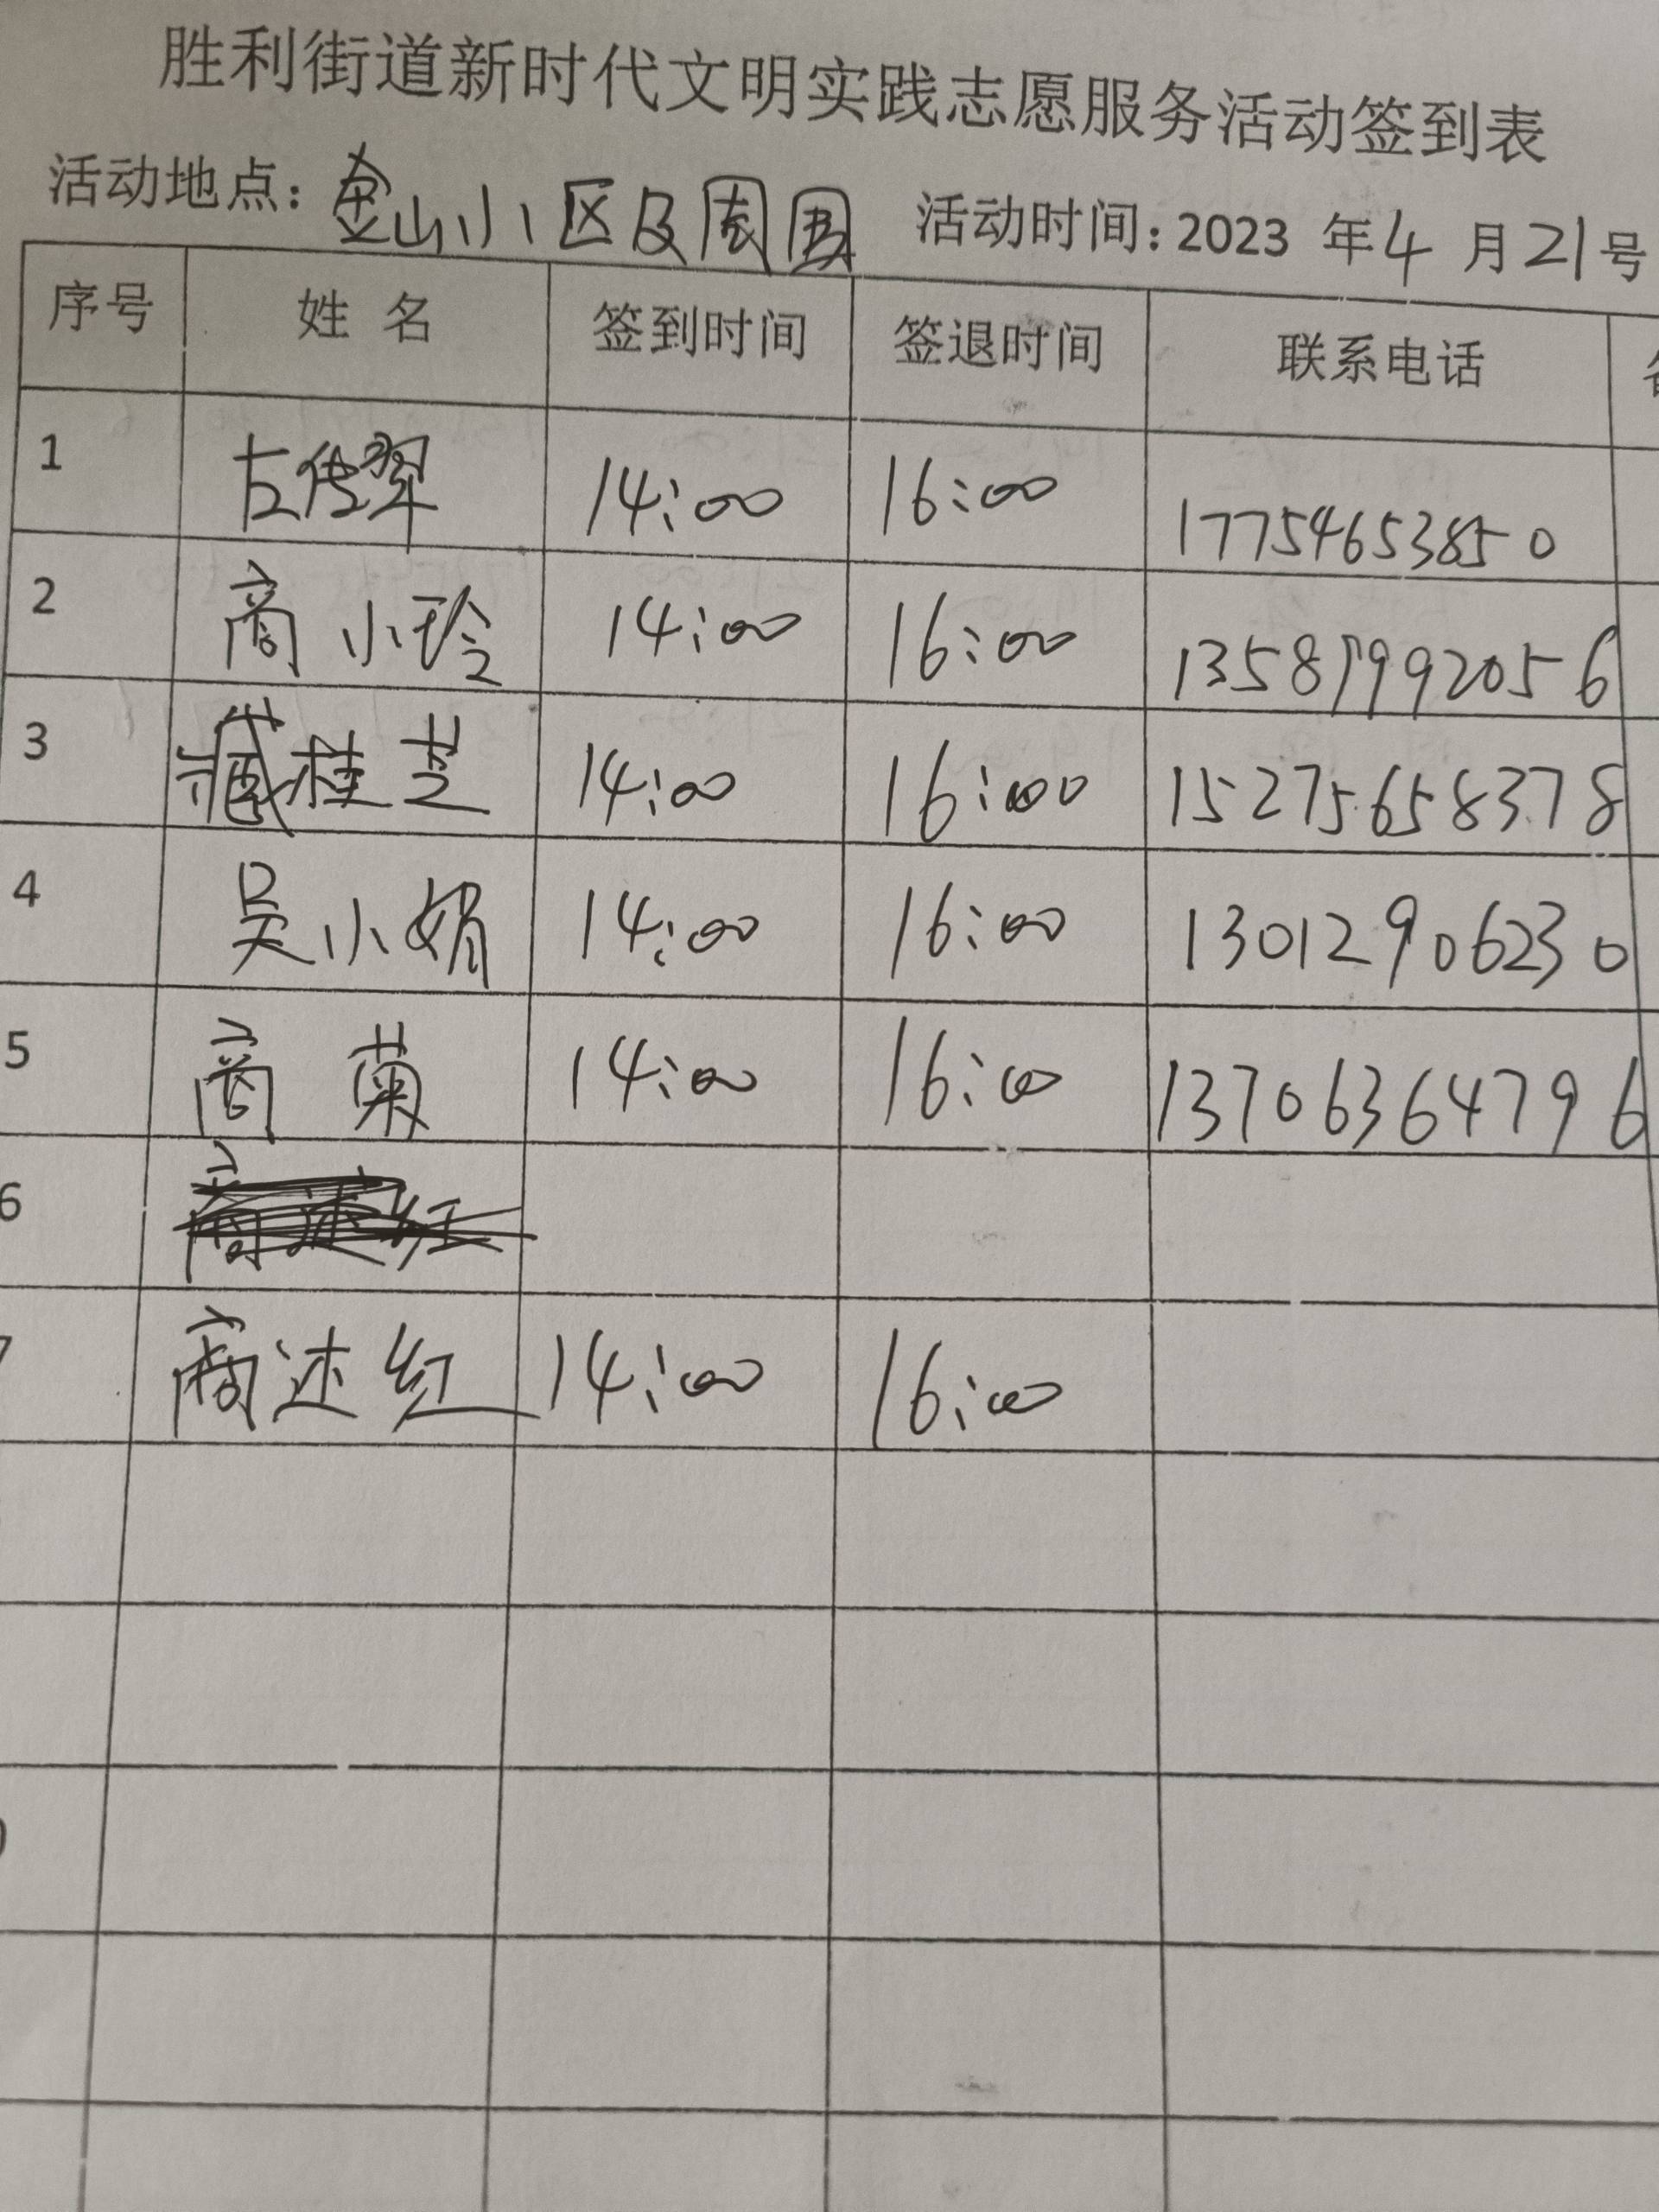 胜利街道新时代文明实践志愿服务活动签到表
活动地点：金山小区及周围 活动时间：2023 年4 月21号
序号 姓名 签到时间 签退时间 联系电话
1 左传翠 14:00 16:00 17754653850
2 商小玲 14:00 16:00 13589992056
3 臧桂芝 14:00 16:00 15275658378
4 吴小娟 14:00 16:00 13012906230
5 商菊 14:00 16:00 13706364796
6 商述红
7 商述红 14:00 16:00